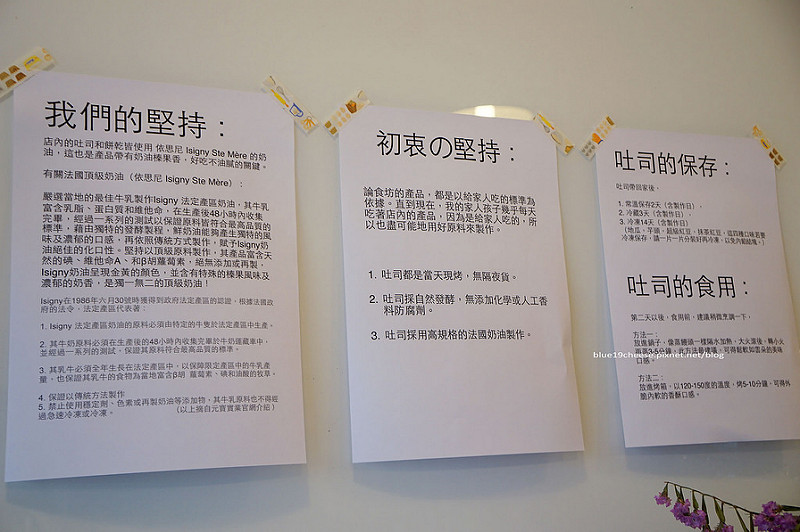 我們的堅持：
店內的吐司和餅乾皆使用 依思尼 Isigny Ste Mère 的奶
油，這也是產品帶有奶油榛果香，好吃不油膩的關鍵。
有關法國頂級奶油（依思尼 Isigny Ste Mère）：
嚴選當地的最佳牛乳製作Isigny 法定產區奶油，其牛乳
富含乳脂、蛋白質和維他命，在生產後48小時內收集
完畢，經過一系列的測試以保證原料皆符合最高品質的
標準，藉由獨特的發酵製程，鮮奶油能夠產生獨特的風
味及濃郁的口感，再依照傳統方式製作，賦予Isigny奶
油絕佳的化口性。堅持以頂級原料製作，其產品富含天
然的碘、維他命A、和β胡蘿蔔素，絕無添加或再製，
Isigny奶油呈現金黃的顏色，並含有特殊的榛果風味及
濃郁的奶香，是獨一無二的頂級奶油！
Isigny在1986年六月30號時獲得到政府法定產區的認證，根據法國政
府的法令、法定產區代表著：
1. Isigny 法定產區奶油的原料必須由特定的牛隻於法定產區中生產。
2. 其牛奶原料必須在生產後的48小時內收集完畢於牛奶儲藏車中，
並經過一系列的測試，保證其原料符合最高品質的標準。
3. 其乳牛必須全年生長在法定產區中，以保障限定產區中的牛乳產
量，也保證其乳牛的食物為當地富含β胡 蘿蔔素、碘和油酸的牧草。
4. 保證以傳統方法製作
5. 禁止使用穩定劑、色素或再製奶油等添加物，其牛乳原料也不得經
過急速冷凍或冷凍。 （以上摘自元寶實業官網介紹）
初衷の堅持：
論食坊的產品，都是以給家人吃的標準為
依據。直到現在，我的家人孩子幾乎每天
吃著店內的產品，因為是給家人吃的，所
以也盡可能地用好原料來製作。
1. 吐司都是當天現烤，無隔夜貨。
2. 吐司採自然發酵，無添加化學或人工香
料防腐劑。
3. 吐司採用高規格的法國奶油製作。
吐司的保存：
吐司帶回家後，
1. 常溫保存2天（含製作日），
2. 冷藏3天（含製作日），
3. 冷凍14天（含製作日），
（地瓜，芋頭，超級紅豆，抹茶紅豆，這四種口味若要
冷凍保存，請一片一片分裝好再冷凍，以免內餡結塊。）
吐司的食用：
第二天以後，食用前，建議稍微烹調一下，
方法一：
放進鍋子，像蒸饅頭一樣隔水加熱，大火滾後，轉小火
口感。
方法二：
放進烤箱，以120-150度的溫度，烤5-10分鐘，可得外
脆內軟的香酥口感。
blue19chouse.pixnet.net/blog